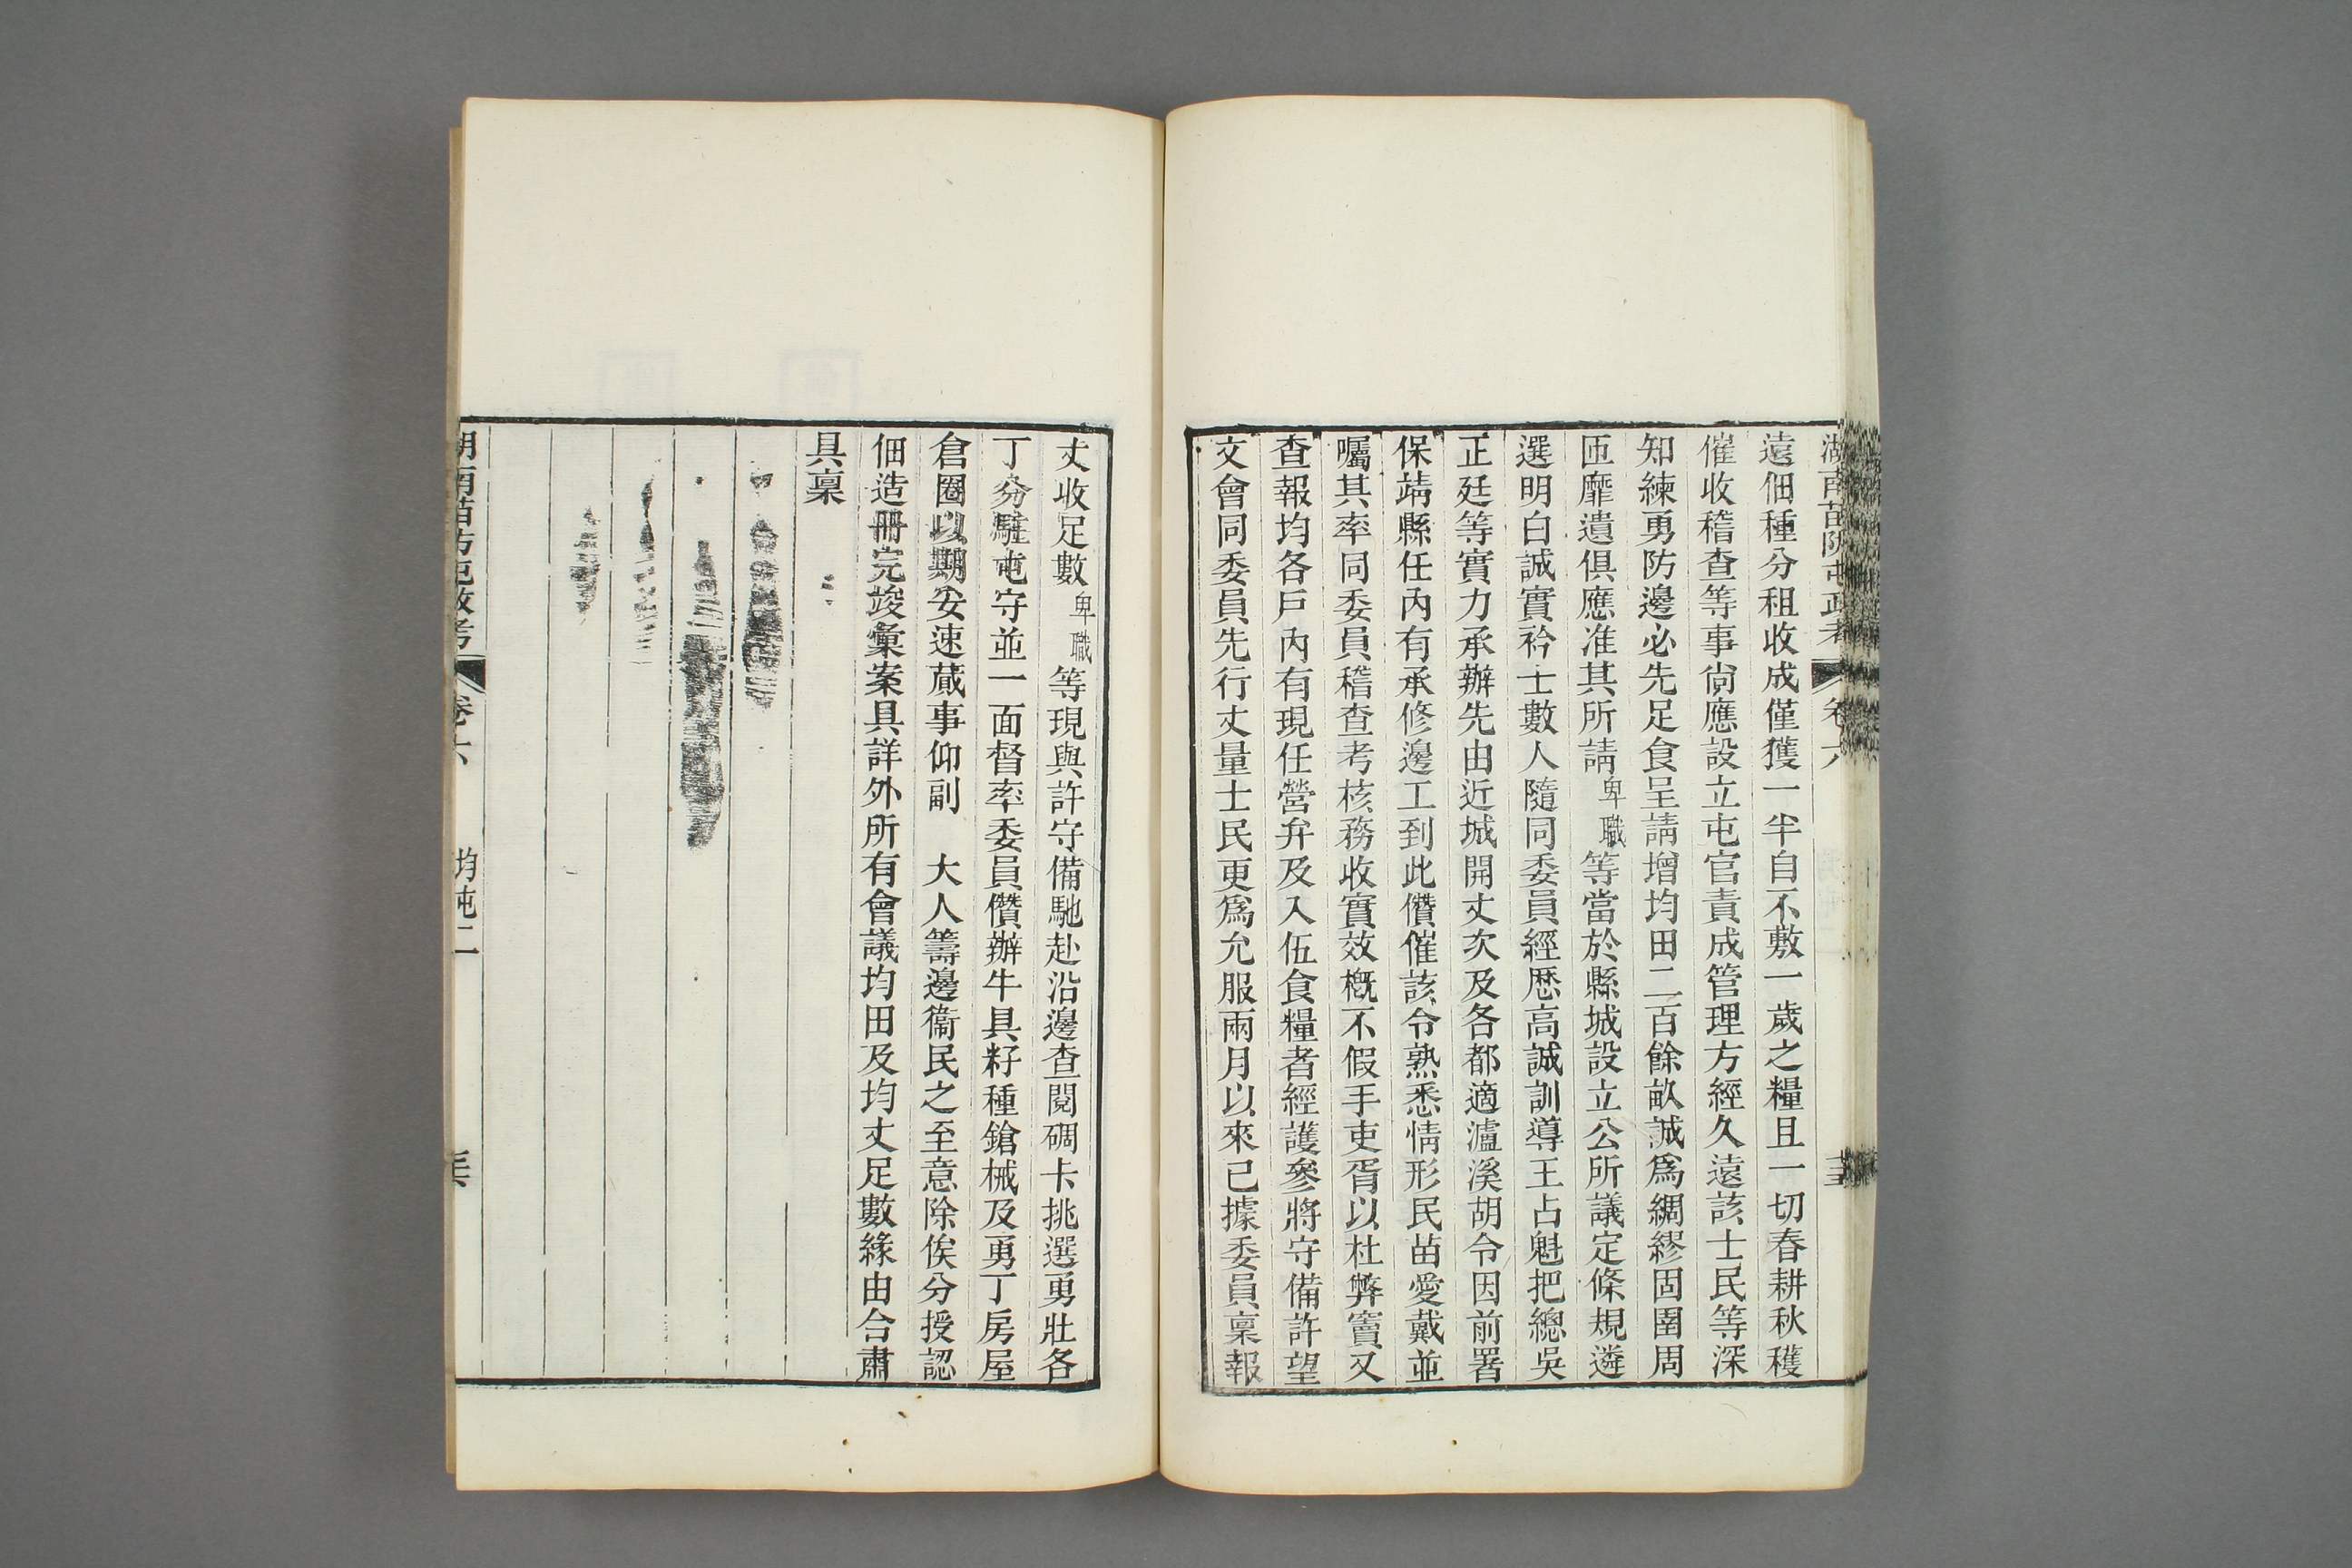 湖南苗防屯政考 卷六
遠佃種分租收成僅獲一半自不敷一歲之糧且一切春耕秋穫
催收稽查等事尙應設立屯官責成管理方經久遠該士民等深
知練勇防邊必先足食呈請增均田二百餘畝誠爲綢繆固圉周
匝靡遺俱應准其所請卑職等當於縣城設立公所議定條規遴
選明白誠實衿士數人隨同委員經歷高誠訓導王占魁把總吳
正廷等實力承辦先由近城開丈次及各都適瀘溪胡令因前署
保靖縣任內有承修邊工到此儹催該令熟悉情形民苗愛戴並
囑其率同委員稽查考核務收實效槪不假手吏胥以杜弊竇又
查報均各戶內有現任營弁及入伍食糧者經護參將守備許望
文會同委員先行丈量士民更爲允服兩月以來已據委員稟報
丈收足數卑職等現與許守備馳赴沿邊查閱碉卡挑選勇壯各
丁分駐屯守並一面督率委員儹辦牛具籽種鎗械及勇丁房屋
倉圈以期妥速蕆事仰副 大人籌邊衞民之至意除俟分授認
佃造冊完竣彙案具詳外所有會議均田及均丈足數緣由合肅
具稟
湖南苗防屯政考 卷六 均屯二